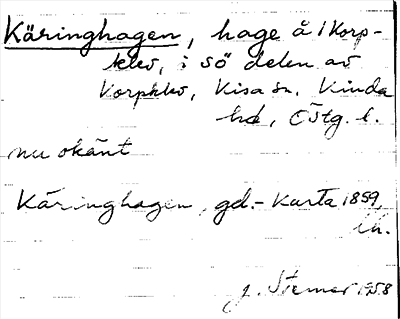 Käringhagen, hage å 1 Korp-
klev, i sö delen av
Korpklev, Kisa sn, Kinda
hd, Östg. l.
nu okänt
Käringhagen, gd.- Karta 1859,
ih.
J. Sterner 1958